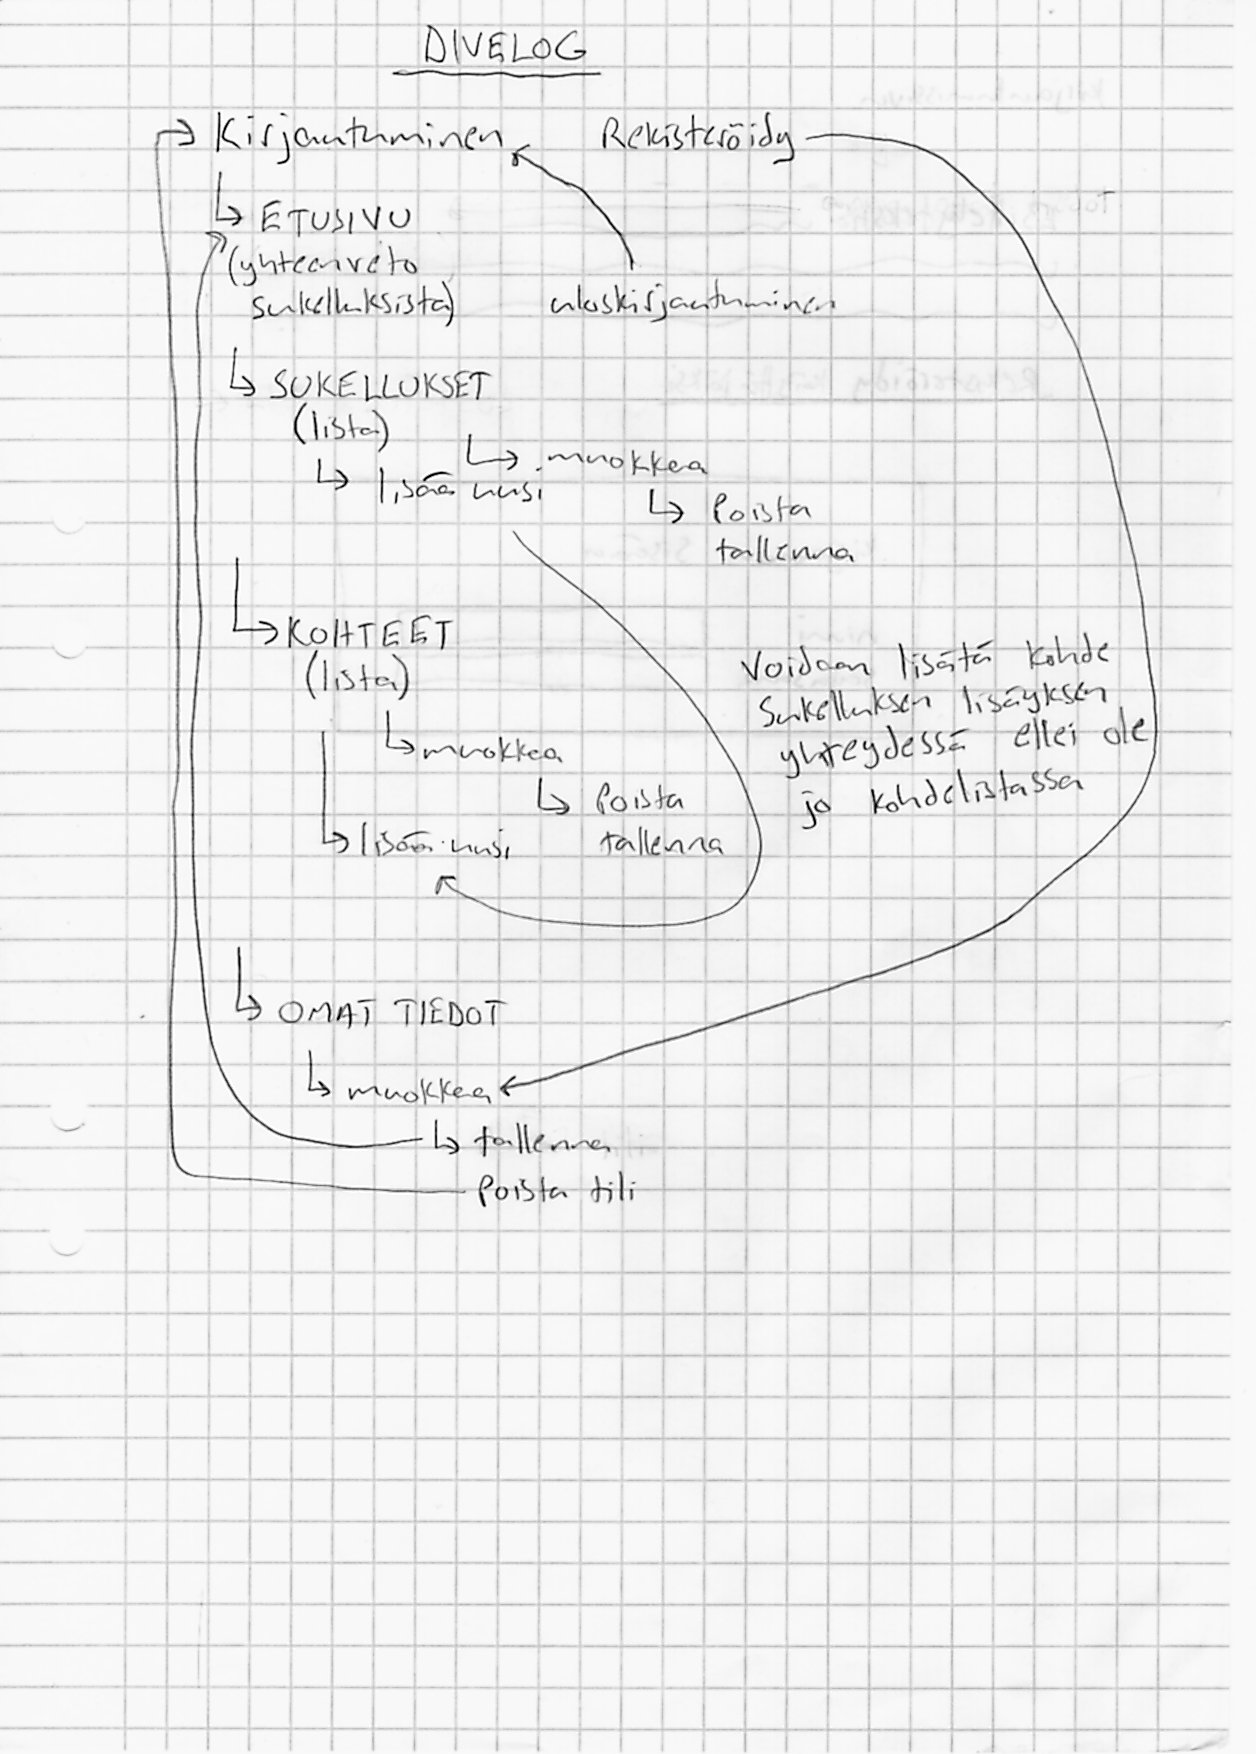 DIVELOG
Kirjautuminen Rekisteröidy
ETUSIVU
(yhteenveto
sukelluksista) uloskirjautuminen
SUKELLUKSET
(lista)
muokkea
lisää uusi
Poista
tallenna
KOHTEET
(lista)
Voidaan lisätä kohde
Sukelluksen lisäyksen
yhteydessä ellei ole
jo kohdelistassa
muokkea
Poista
lisää uusi tallenna
OMAT TIEDOT
muokkea
tallenna
Poista tili